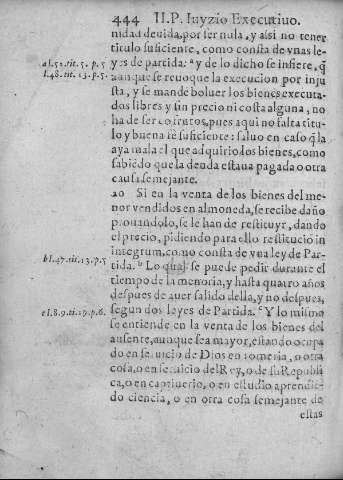 444 II.P. Iuyzio Executiuo.
nidad deuida, por ser nula, y assi no tener
titulo suficiente, como consta de vnas le-
a l.52. tit. 5. p. 5 yes de partida: a y de lo dicho se infiere, q̃
l.48. tit. 13. p. 5. aunque se reuoque la execucion por inju
sta, y se mande boluer los bienes executa-
dos libres y sin precio ni costa alguna, no
ha de ser cõ frutos, pues aqui no falta titu-
lo y buena fè suficiente: saluo en caso q̃ la
aya mala el que adquirio los bienes, como
sabiẽdo que la deuda estaua pagada o otra
causa semejante.
20 Si en la venta de los bienes del me-
nor vendidos en almoneda, se recibe daño
prouandolo, se le han de restituyr, dando
el precio, pidiendo para ello restituciõ in
integrum, como consta de vna ley de Par-
b l.47. tit. 13. p. 5 tida. b Lo qual se puede pedir durante el
tiempo de la menoria, y hasta quatro años
despues de auer salido della, y no despues,
c l.8.9. ti.19. p.6. segun dos leyes de Partida. c Y lo mismo
se entiende en la venta de los bienes del
ausente, aunque sea mayor, estando ocupa
do en seruicio de Dios en romeria, o otra
cosa, o en seruicio del Rey, o de su Republi
ca, o en captiuerio, o en estudio aprendiẽ-
do ciencia, o en otra cosa semejante de
estas